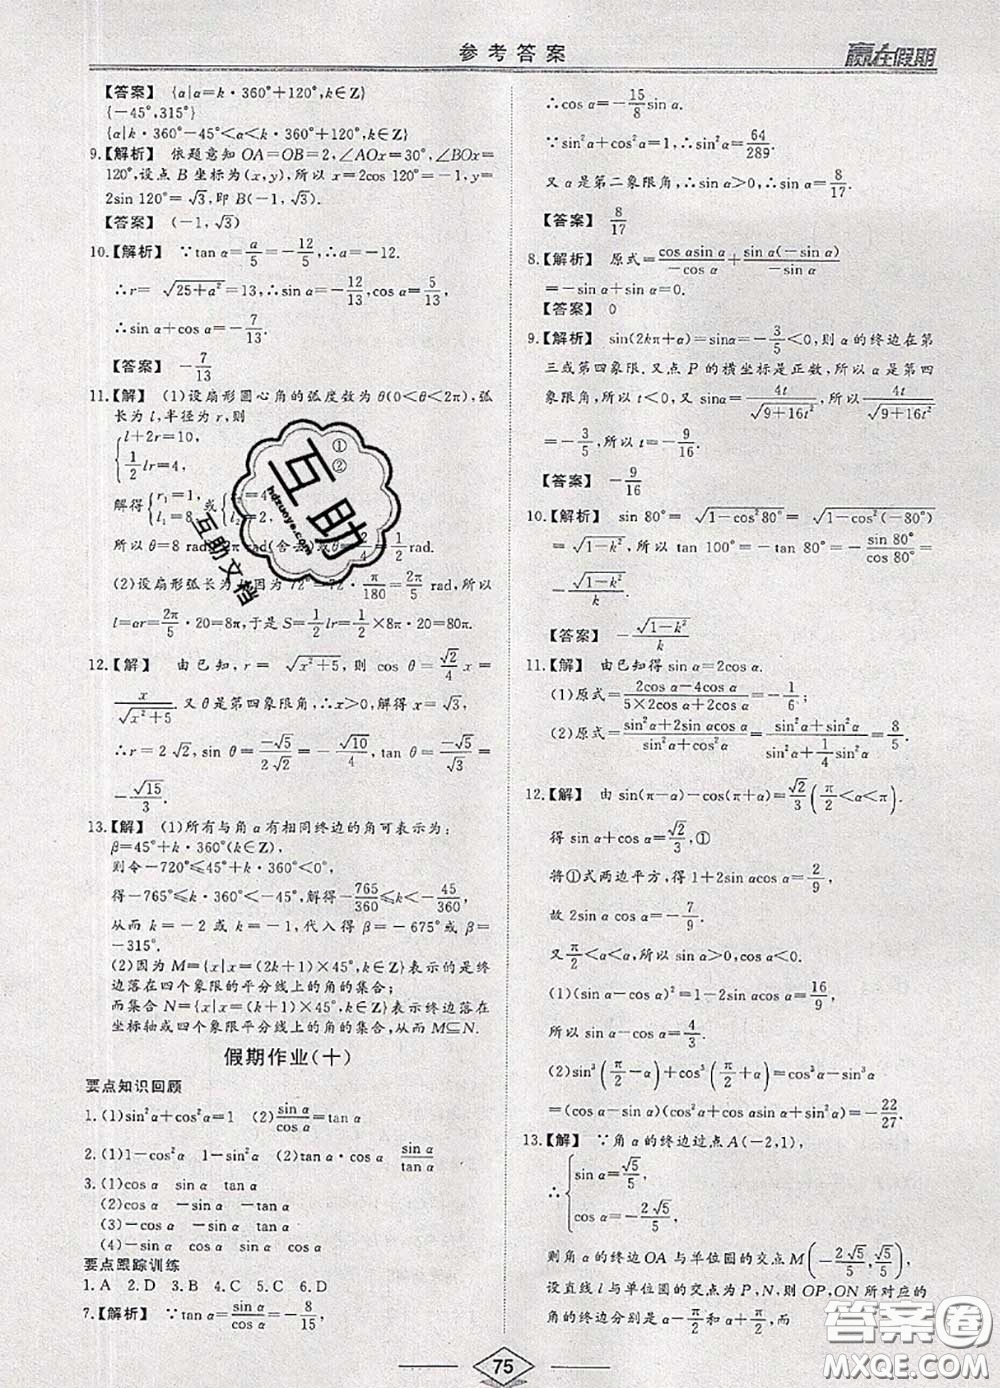 参考答案
赢在假期
【答案】 {α|α=k·360°+120°,k∈Z}
{-45°,315°}
{α|k·360°-45°<α<k·360°+120°,k∈Z}
9.【解析】 依题意知 OA=OB=2,∠AOx=30°,∠BOx=
120°,设点 B 坐标为(x,y),所以 x=2cos 120°=-1,y=
2sin 120°=√3,即 B(-1,√3).
【答案】 (-1,√3)
10.【解析】 ∵tan α=a/5=-12/5,∴a=-12.
∴r=√(25+a²)=13,∴sin α=-12/13,cos α=5/13,
∴sin α+cos α=-7/13.
【答案】 -7/13
11.【解】 (1)设扇形圆心角的弧度数为 θ(0<θ<2π),弧
长为 l,半径为 r,则
{l+2r=10, ①
1/2 lr=4, ②
解得{r₁=1, l₁=8 或{r₂=4, l₂=2,
所以 θ=8 rad
=2/4=1/2 rad.
(2)设扇形弧长为 l,因为 72°=72×π/180=2π/5 rad,所以
l=αr=2π/5·20=8π,于是 S=1/2 lr=1/2×8π·20=80π.
12.【解】 由已知,r=√(x²+5),则 cos θ=√2/4 x=
x/√(x²+5).又 θ 是第四象限角,∴x>0,
∴r=2√2,sin θ=-√5/2√2=-√10/4,tan θ=-√5/√3=
-√15/3.
13.【解】 (1)所有与角 α 有相同终边的角可表示为:
β=45°+k·360°(k∈Z),
则令-720°≤45°+k·360°<0°,
得-765°≤k·360°<-45°,解得-765/360≤k<-45/360,
从而 k=-2 或 k=-1,代入得 β=-675°或 β=
-315°.
(2)因为 M={x|x=(2k+1)×45°,k∈Z}表示的是终
边落在四个象限的平分线上的角的集合;
而集合 N={x|x=(k+1)×45°,k∈Z}表示终边落在
坐标轴或四个象限平分线上的角的集合,从而 M⊆N.
假期作业(十)
要点知识回顾
1.(1)sin²α+cos²α=1 (2)sin α/cos α=tan α
2.(1)1-cos²α 1-sin²α cos αtan α sin α/tan α
3.(1)cos α sin α tan α
(2)cos α -sin α -tan α
(3)-cos α -sin α tan α
(4)-sin α cos α sin α cos α
要点跟踪训练
1.A 2.D 3.B 4.C 5.C 6.D
7.【解析】 ∵tan α=sin α/cos α=-8/15,
∴cos α=-15/8 sin α.
∵sin²α+cos²α=1,∴sin²α=64/289.
又 α 是第二象限角,∴sin α>0,∴sin α=8/17.
【答案】 8/17
8.【解析】 原式=cos αsin α/-cos α+sin α(-sin α)/-sin α
=-sin α+sin α=0.
【答案】 0
9.【解析】 sin(2kπ+α)=sinα=-3/5<0,则 α 的终边在第
三或第四象限.又点 P 的横坐标是正数,所以 α 是第四
象限角,所以 t<0,又 sinα=4t/√(9+16t²),则 4t/√(9+16t²)=
-3/5,所以 t=-9/16.
【答案】 -9/16
10.【解析】 sin 80°=√(1-cos²80°)=√(1-cos²(-80°))
=√(1-k²),所以 tan 100°=-tan 80°=-sin 80°/cos 80°=
-√(1-k²)/k.
【答案】 -√(1-k²)/k
11.【解】 由已知得 sin α=2cos α.
(1)原式=2cos α-4cos α/5×2cos α+2cos α=-1/6;
(2)原式=sin²α+2sin αcos α/sin²α+cos²α=sin²α+sin²α/sin²α+1/4 sin²α=8/5.
12.【解】 由 sin(π-α)-cos(π+α)=√2/3(π/2<α<π).
得 sin α+cos α=√2/3,①
将①式两边平方,得 1+2sin αcos α=2/9,
故 2sin αcos α=-7/9.
又 π/2<α<α,所以 sin α>0,cos α<0.
(1)(sin α-cos α)²=1-2sin αcos α=16/9,
所以 sin α-cos α=4/3.
(2)sin³(π/2-α)+cos³(π/2+α)=cos³α-sin³α
=(cos α-sin α)(cos²α+cos αsin α+sin²α)=-22/27.
13.【解】 ∵角 α 的终边过点 A(-2,1),
∴{sin α=√5/5,
cos α=-2√5/5,
则角 α 的终边 OA 与单位圆的交点 M(-2√5/5,√5/5),
设直线 l 与单位圆的交点为 P,N,则 OP,ON 所对应的
角的终边分别是 α-π/2 和 α+π/2,而
75
互助
hdzuoye.com
互助文档
答案圈
MXQE.COM